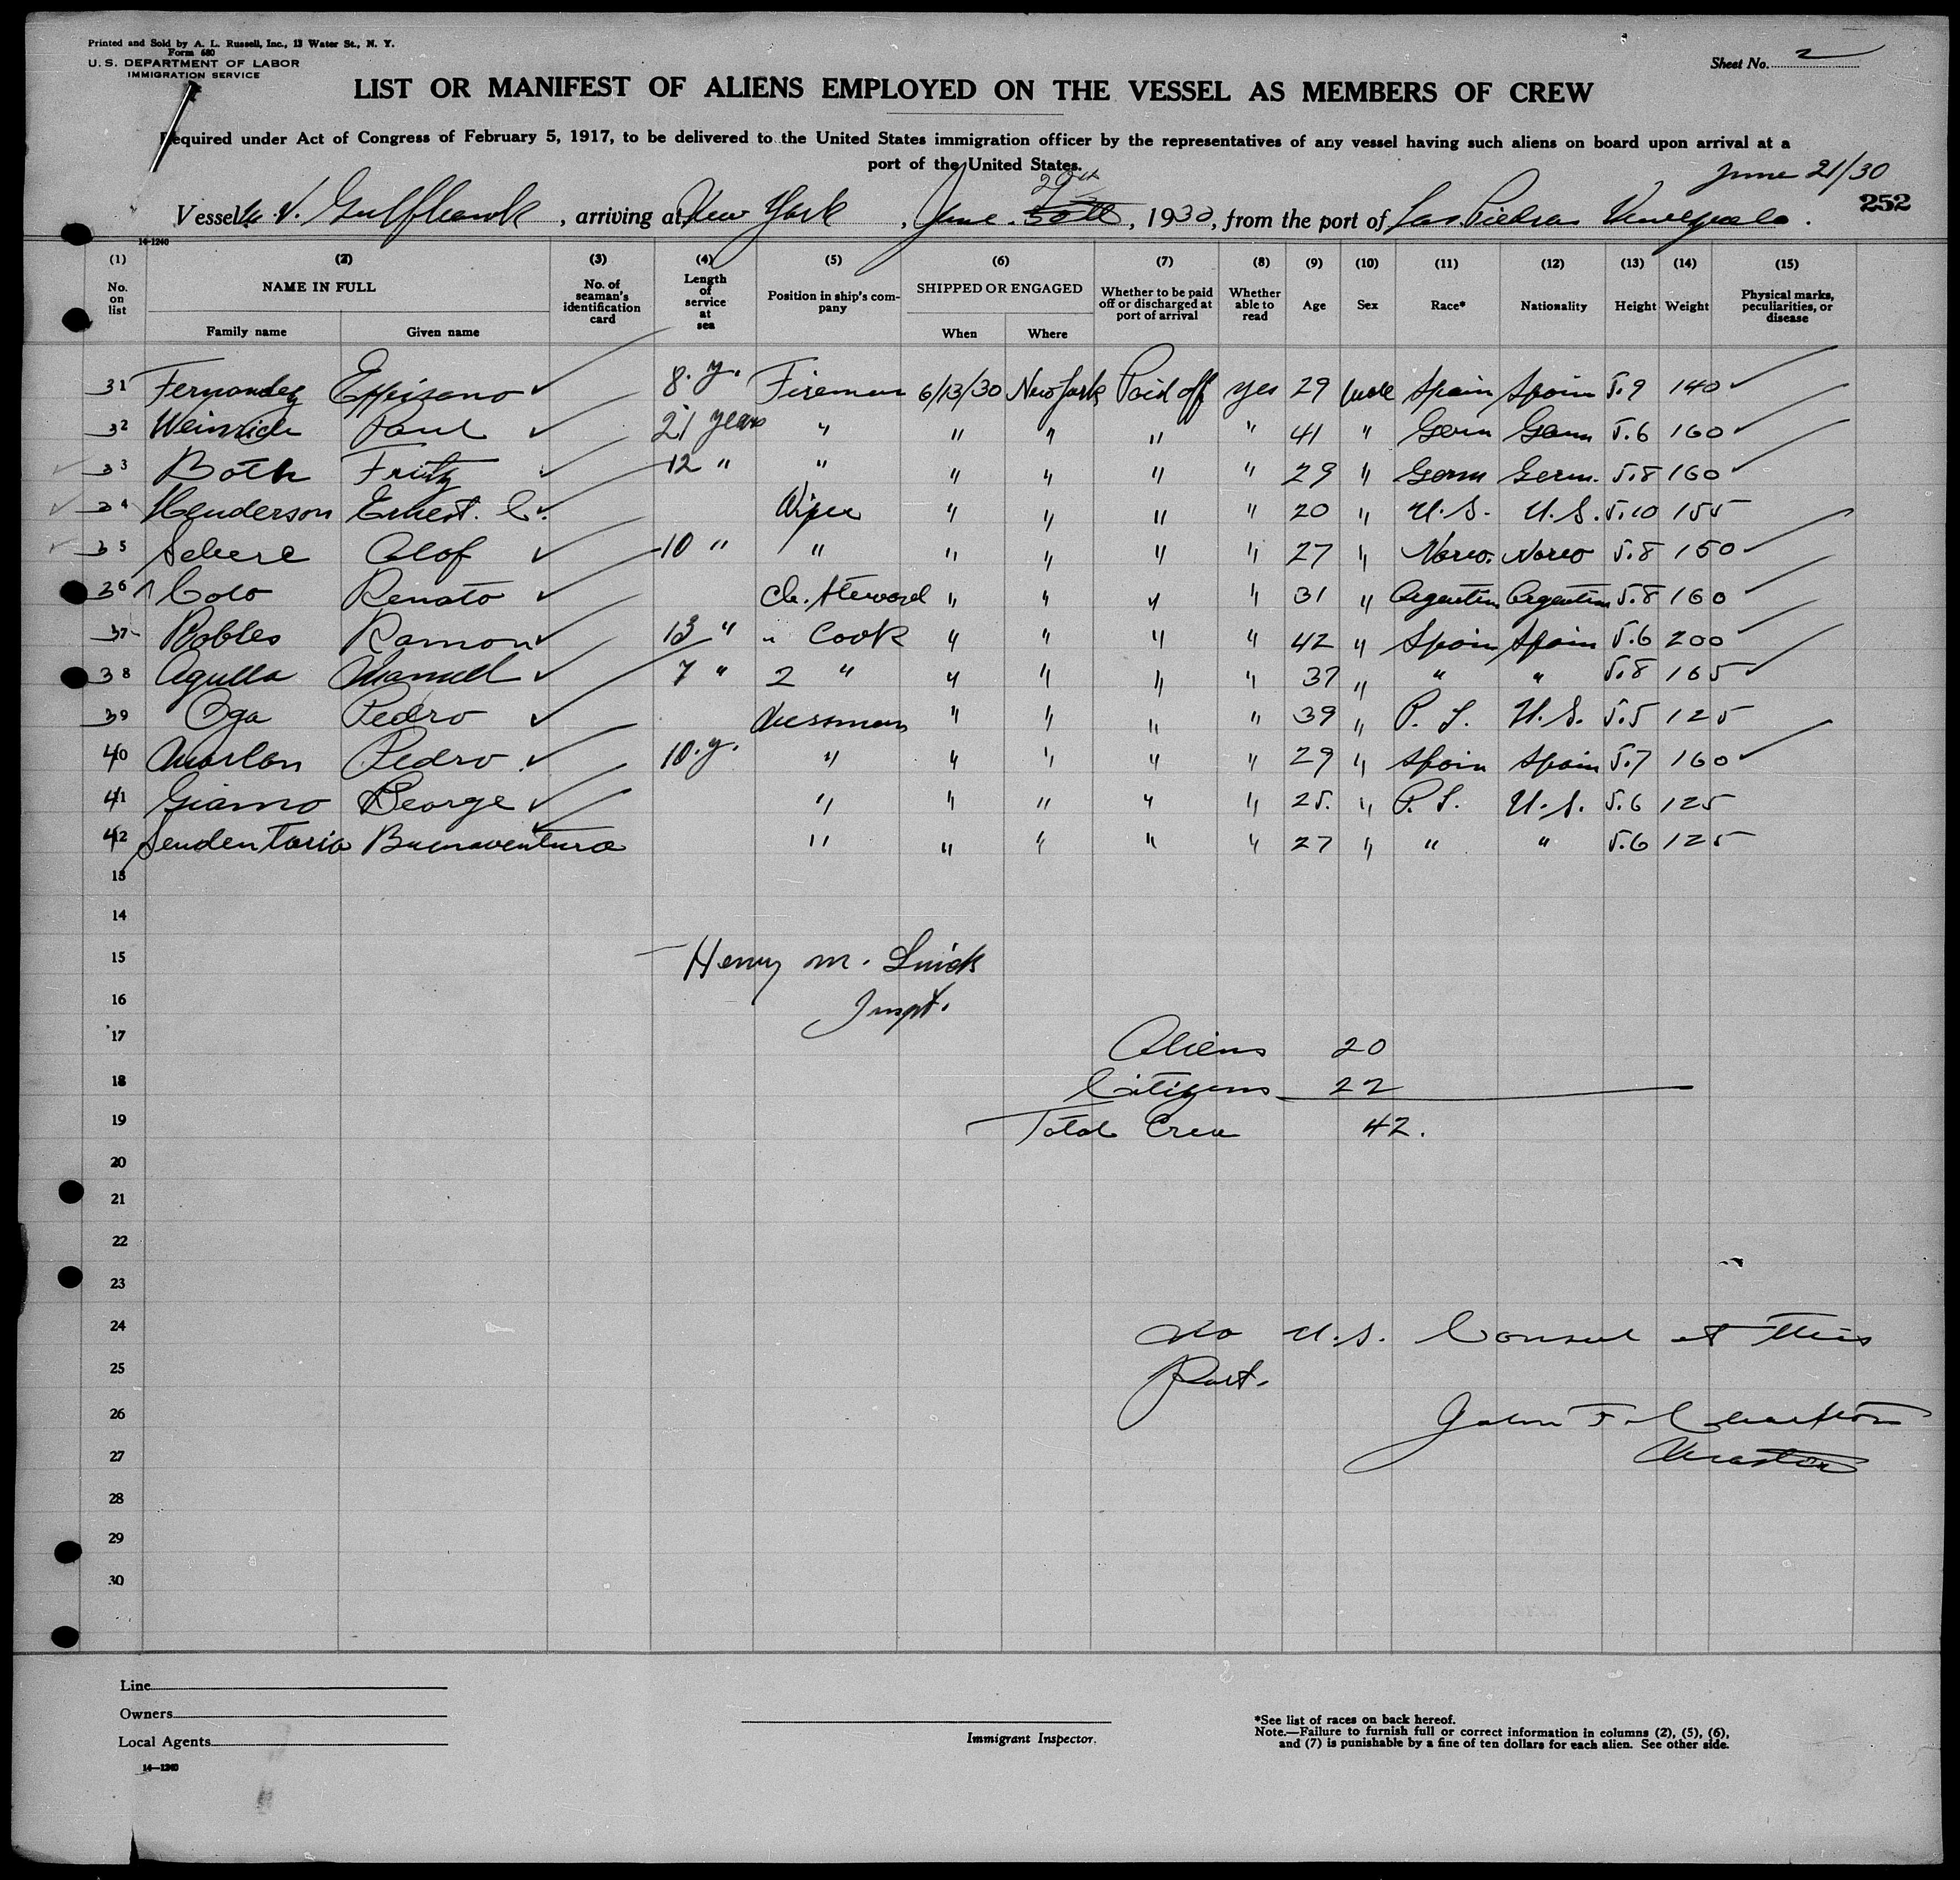 Printed and Sold by A. L. Russell, Inc., 13 Water St., N. Y.
Form 680
U. S. DEPARTMENT OF LABOR
IMMIGRATION SERVICE
Sheet No. 2
LIST OR MANIFEST OF ALIENS EMPLOYED ON THE VESSEL AS MEMBERS OF CREW
Required under Act of Congress of February 5, 1917, to be delivered to the United States immigration officer by the representatives of any vessel having such aliens on board upon arrival at a
port of the United States.
June 21/30
29th
Vessel M. V. Gulfhawk, arriving at New York, June 30th, 1930, from the port of Las Piedras Venezuela. 252
14-1240
(1) (2) (3) (4) (5) (6) (7) (8) (9) (10) (11) (12) (13) (14) (15)
No. on list NAME IN FULL No. of seaman's identification card Length of service at sea Position in ship's company SHIPPED OR ENGAGED Whether to be paid off or discharged at port of arrival Whether able to read Age Sex Race* Nationality Height Weight Physical marks, peculiarities, or disease
Family name Given name When Where
31 Fernandez 8. y. Fireman 6/13/30 New York Paid off yes 29 Male Spain Spain 5.9 140
32 Weinrich Paul 21 years " " " " " 41 " Germ Germ 5.6 160
33 Both Fritz 12 " " " " " " 29 " Germ Germ. 5.8 160
34 Henderson Ernest. C. Wiper " " " " 20 " U.S. U.S. 5.10 155
35 Olof 10 " " " " " " 27 " Norw. Norw 5.8 150
36 Coto Renato Ch. Steward " " " " 31 " Argentin Argentin 5.8 160
37 Robles Ramon 13 " " Cook " " " " 42 " Spain Spain 5.6 200
38 Agulla Manuel 7 " 2 " " " " " 37 " " " 5.8 165
39 Oga Pedro Messman " " " " 39 " P. I. U.S. 5.5 125
40 Pedro 10. y. " " " " " 29 " Spain Spain 5.7 160
41 Giamo George " " " " " 25. " P. I. U.S. 5.6 125
42 Buenaventura " " " " " 27 " " " 5.6 125
13
14
15 Henry M.
16 Inspt.
17 Aliens 20
18 Citizens 22
19 Total Crew 42.
20
21
22
23
24 No U.S. Consul at this
25 Port.
26 John F.
27 Master
28
29
30
Line
Owners
Local Agents
14-1240
Immigrant Inspector.
*See list of races on back hereof.
Note.—Failure to furnish full or correct information in columns (2), (5), (6),
and (7) is punishable by a fine of ten dollars for each alien. See other side.